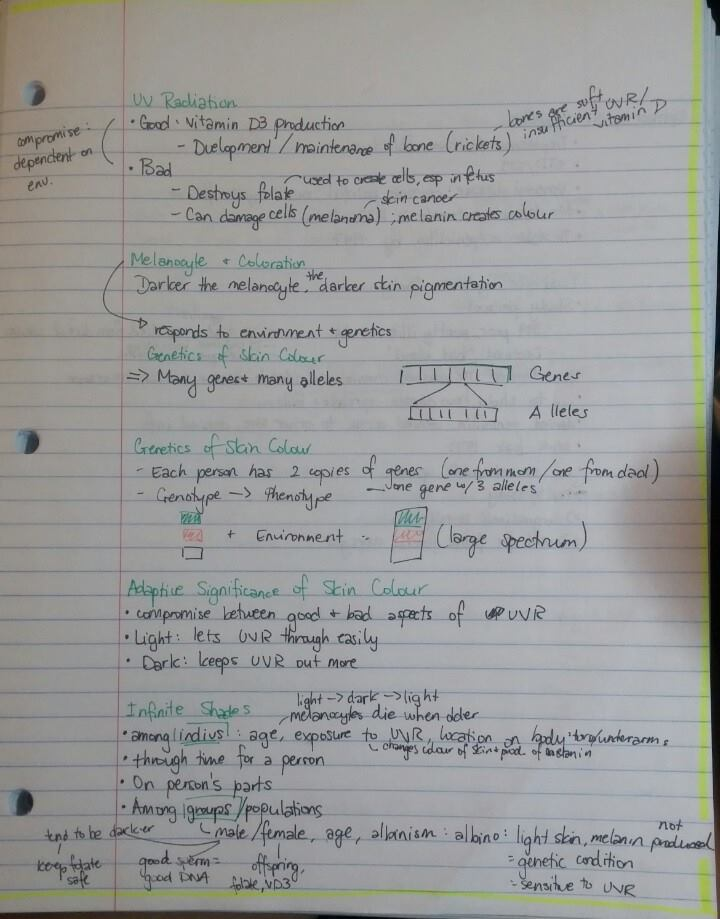 UV Radiation
• Good: Vitamin D3 production
bones are soft UVR/
insufficient vitamin D
- Duelopment / maintenance of bone (rickets)
compromise:
dependent on
env.
• Bad
- Destroys folate
used to create cells, esp in fetus
skin cancer
- Can damage cells (melanoma) ; melanin creates colour
Melanocyte + Coloration
Darker the melanocyte, the darker skin pigmentation
responds to environment + genetics
Genetics of Skin Colour
=> Many genes + many alleles
Genes
Alleles
Genetics of Skin Colour
- Each person has 2 copies of genes (one from mom / one from dad)
- Genotype -> Phenotype
- one gene w/ 3 alleles
+ Environment = (large spectrum)
Adaptive Significance of Skin Colour
• compromise between good + bad aspects of UVR
• Light: lets UVR through easily
• Dark: keeps UVR out more
light -> dark -> light
Infinite Shades
melanocytes die when older
• among indivs : age, exposure to UVR, location on body: underarms
changes colour of skin + prod. of melanin
• through time for a person
• On person's parts
• Among groups / populations
male / female, age, albanism : albino : light skin, melanin not produced
= genetic condition
= sensitive to UVR
tend to be darker
keep folate
safe
good sperm =
good DNA
offspring,
folate, VD3